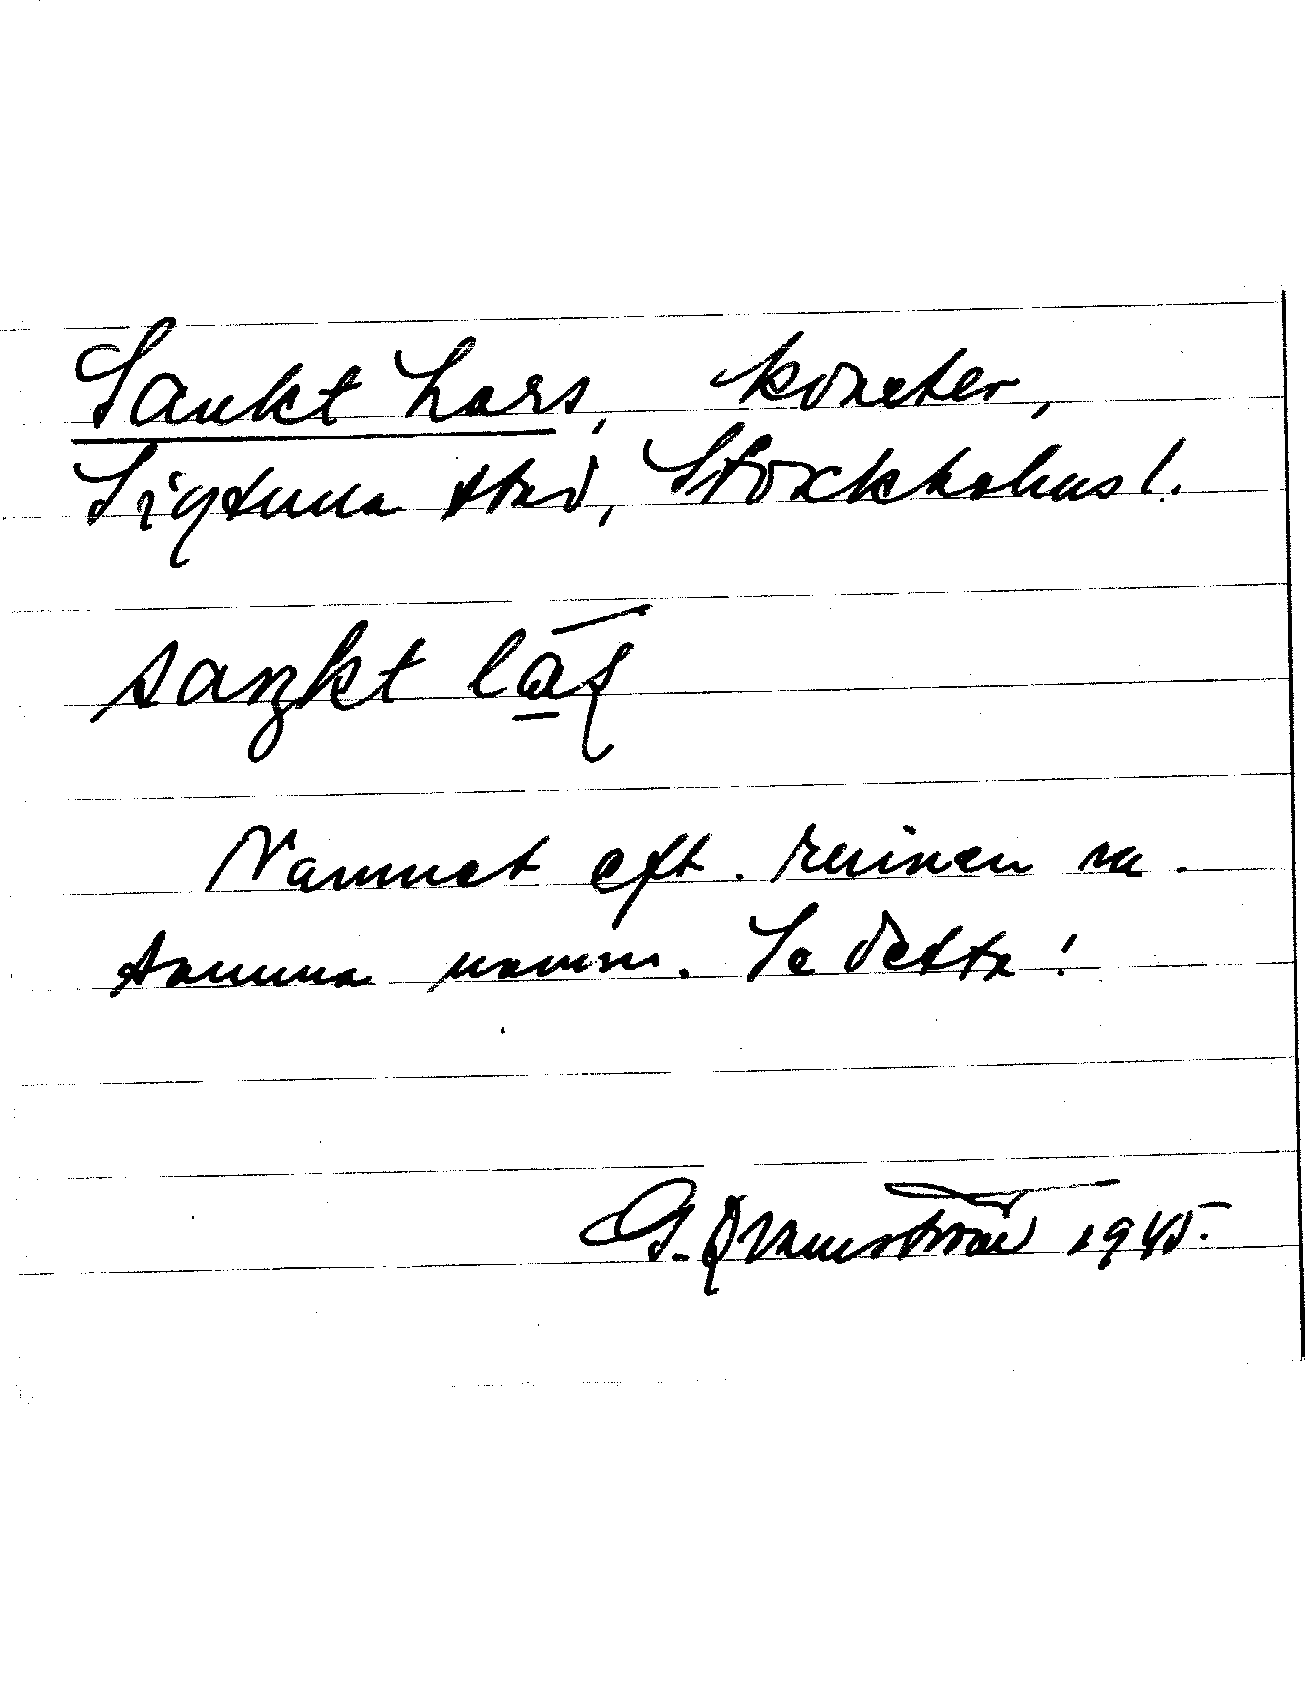 Sankt Lars, kvarter,
Sigtuna stad, Stockholms l.
saŋkt lāʂ
Namnet eft. ruinen m.
samma namn. Se detta!
G. Qvarnström 1945.